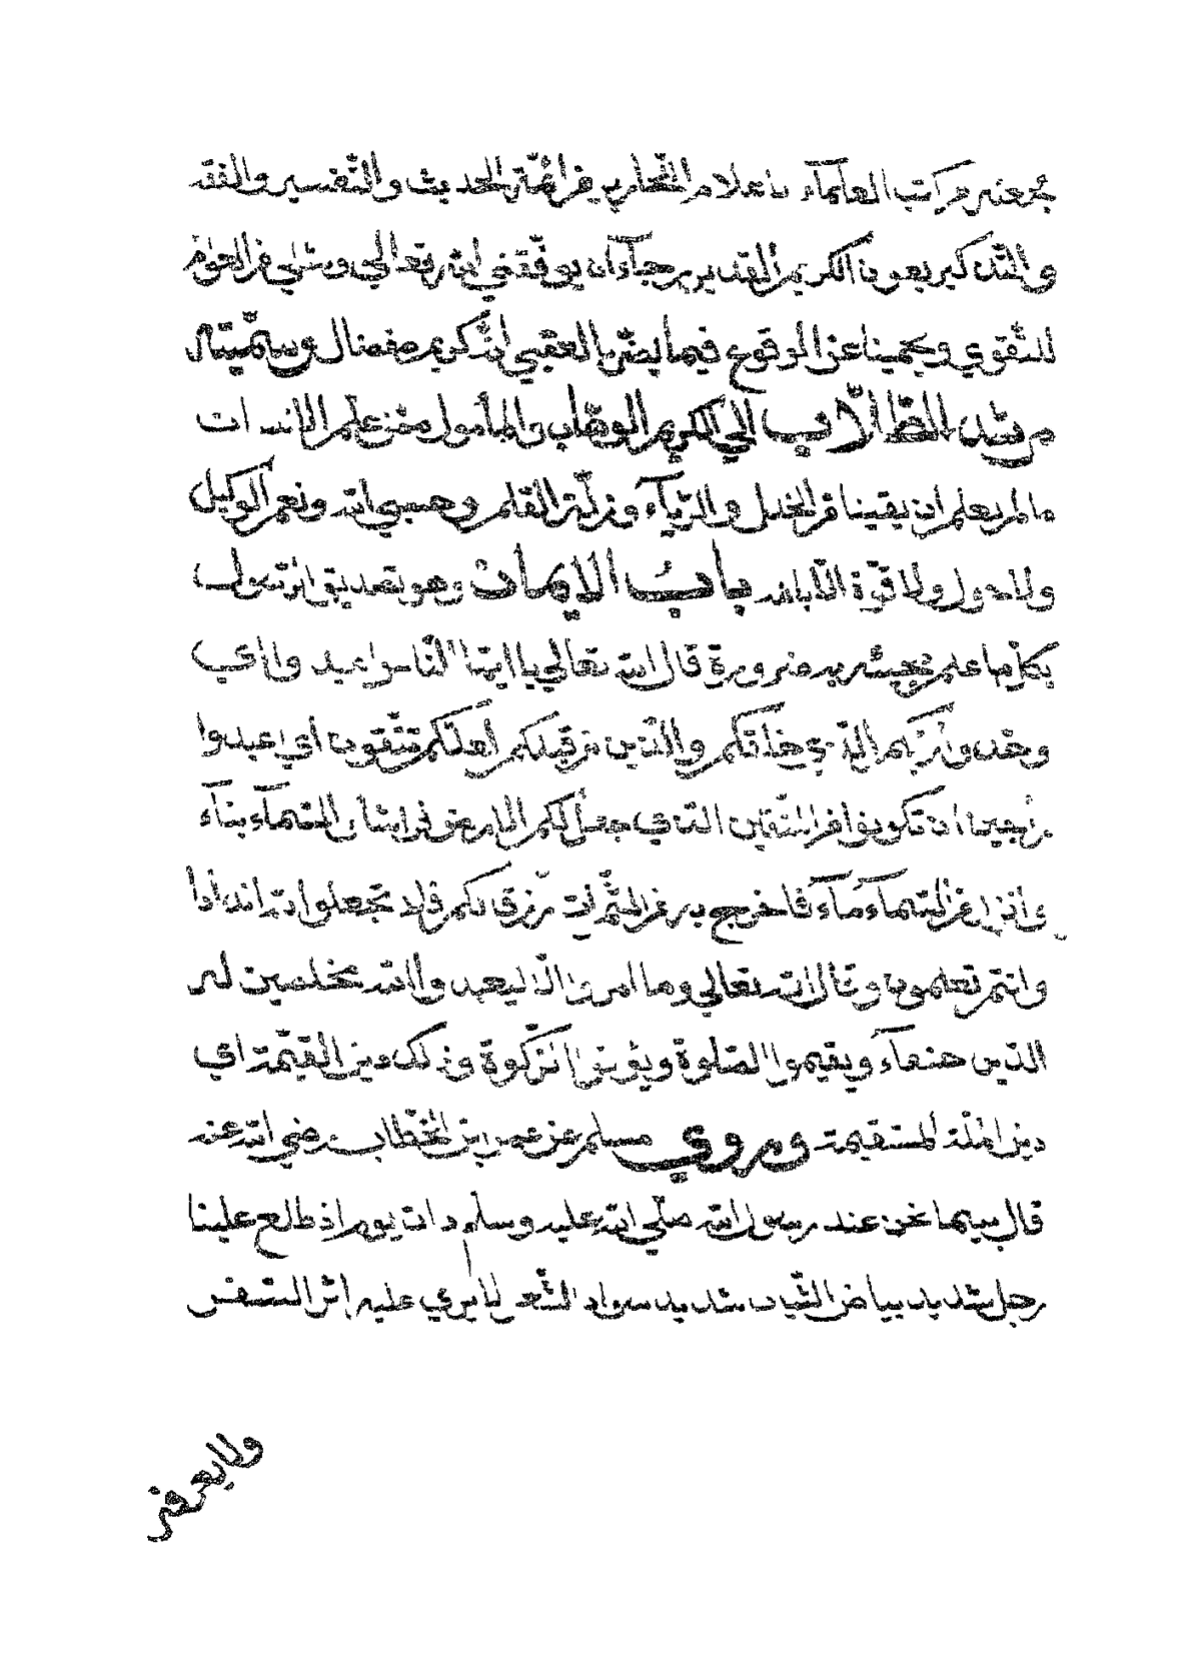 جمعته من كتب العلماء الاعلام النحارير من ائمة الحديث والتفسير والفقه
والتذكير بعون الكريم القدير رجاء ان يوفقني الله تعالى من العوام
للتقوي ويحمينا عن الوقوع فيما يضر بالعقبي انه كريم مفضال وسميته
مرشد الطلاب الي الكريم الوهاب والمأمول ممن علم الله ان
ما لم يعلم ان يقينا من الخلل والرياء وزلة القلم وحسبي الله ونعم الوكيل
ولا حول ولا قوة الا بالله باب الايمان وهو تصديق الرسول
بكل ما علم مجيئه به ضرورة قال الله تعالي يا ايها الناس اعبدوا اي
وحدوا ربكم الذي خلقكم والذين من قبلكم لعلكم تتقون اي اعبدوا
راجين ان تكونوا من المتقين الذي جعل لكم الارض فراشا والسماء بناء
وانزل من السماء ماء فاخرج به من الثمرات رزقا لكم فلا تجعلوا لله اندادا
وانتم تعلمون وقال الله تعالي وما امروا الا ليعبدوا الله مخلصين له
الدين حنفاء ويقيموا الصلوة ويؤتوا الزكوة وذلك دين القيمة اي
دين الملة المستقيمة وروي مسلم عن عمر بن الخطاب رضي الله عنه
قال بينما نحن عند رسول الله صلى الله عليه وسلم ذات يوم اذ طلع علينا
رجل شديد بياض الثياب شديد سواد الشعر لا يري عليه اثر السفر
ولا يعرفه